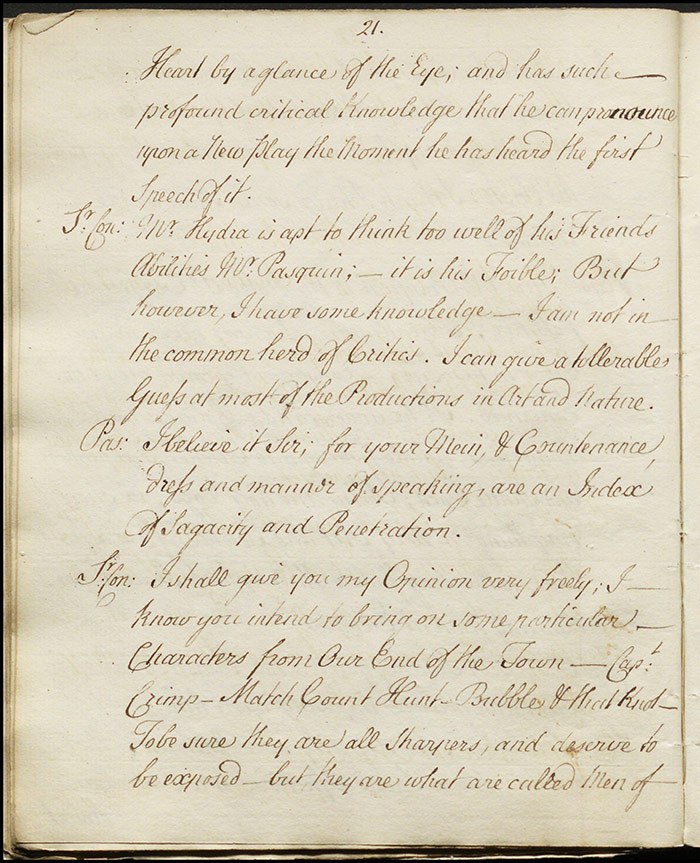 21.
Heart by a glance of the Eye; and has such —
profound critical Knowledge that he can pronounce
upon a New Play the Moment he has heard the first
Speech of it.
Sr. Con: Mr. Hydra is apt to think too well of his Friends
Abilities Mr. Pasquin; — it is his Foible; But
however, I have some knowledge — I am not in —
the common herd of Critics. I can give a tollerable
Guess at most of the Productions in Art and Nature.
Pas: I believe it Sir; for your Mein, & Countenance,
dress and manner of speaking, are an Index
of Sagacity and Penetration.
Sr. Con: I shall give you my Opinion very freely; I —
know you intend to bring on some particular —
Characters from Our End of the Town — Capt.
Crimp — Match Count Hunt — Bubble & that Knot —
To be sure they are all Sharpers, and deserve to
be exposed — but they are what are called Men of —